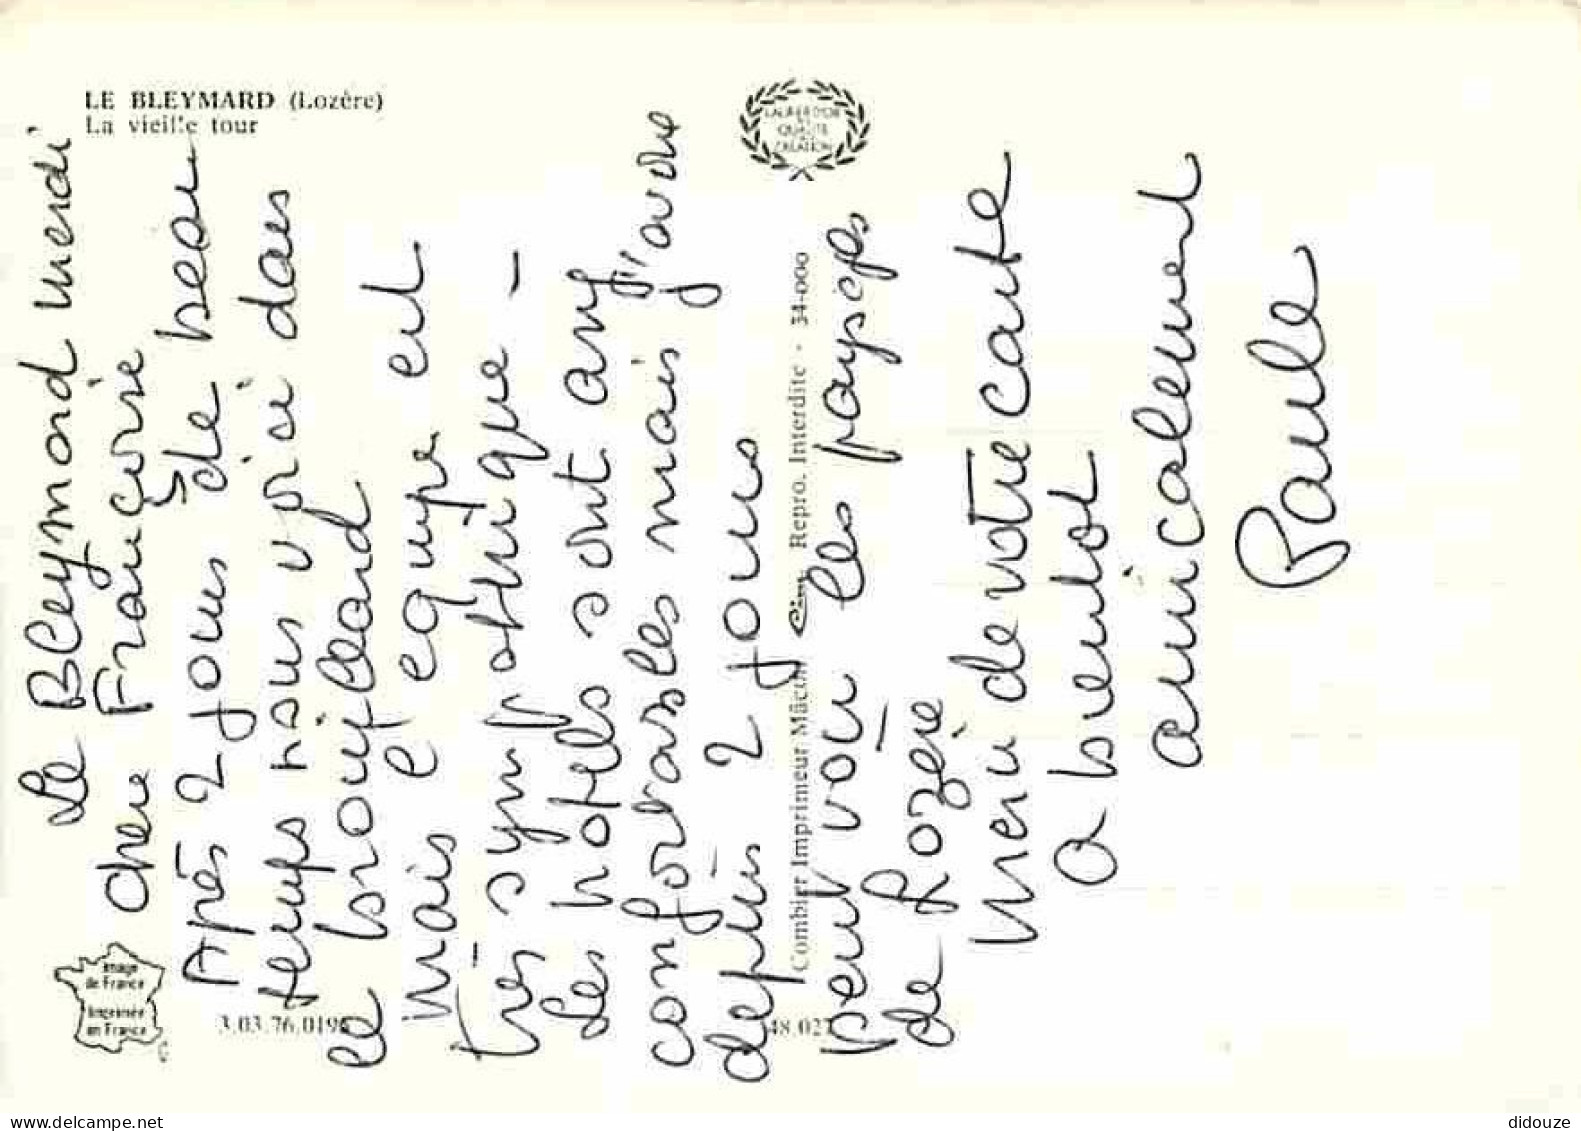 LE BLEYMARD (Lozère)
La vieille tour
LAURIER D'OR
QUALITÉ
CRÉATION
Image
de France
Imprimée
en France
3.03.76.0198
48.027
Combier Imprimeur Mâcon Cim Repro. Interdite - 34-000
Le Bleymard merdi
Chère Françoise
Après 2 jours de beau
temps nous voici dans
le brouillard
mais l equipe est
très sympathique -
Les hotels sont
confortables mais j'avoue
depuis 2 jours
peut voir les paysages
de Lozère
Merci de votre carte
a bientot
amicalement
Paule
My-postcards.net
didouze